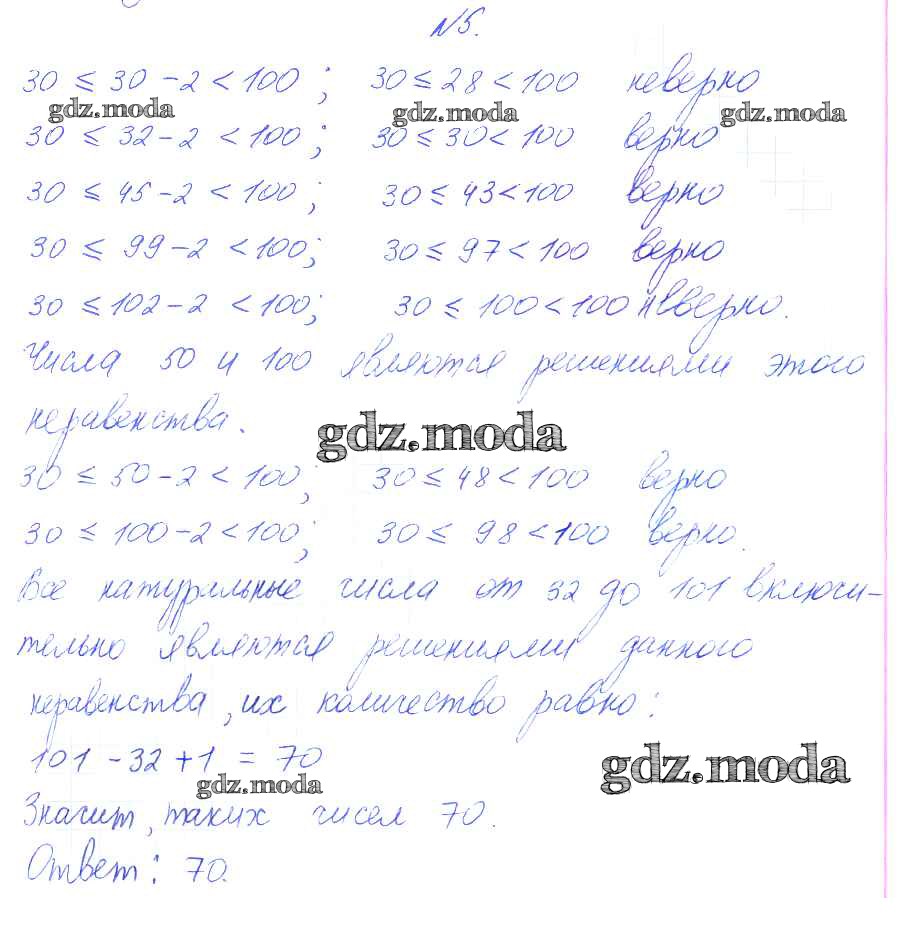 №5.
30 ≤ 30 - 2 < 100; 30 ≤ 28 < 100 неверно
gdz.moda gdz.moda gdz.moda
30 ≤ 32 - 2 < 100; 30 ≤ 30 < 100 верно
30 ≤ 45 - 2 < 100; 30 ≤ 43 < 100 верно
30 ≤ 99 - 2 < 100; 30 ≤ 97 < 100 верно
30 ≤ 102 - 2 < 100; 30 ≤ 100 < 100 неверно.
Числа 50 и 100 являются решениями этого
неравенства.
gdz.moda
30 ≤ 50 - 2 < 100; 30 ≤ 48 < 100 верно
30 ≤ 100 - 2 < 100; 30 ≤ 98 < 100 верно.
Все натуральные числа от 32 до 101 включи-
тельно являются решениями данного
неравенства, их количество равно:
101 - 32 + 1 = 70
gdz.moda gdz.moda
Значит, таких чисел 70.
Ответ: 70.